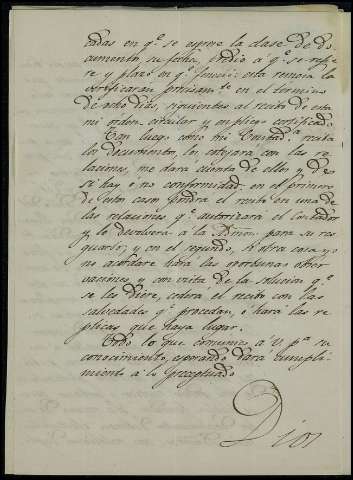 cadas en q.e se exprese la clase de do-
cumento su fecha, credito á q.e se refie-
re y plazo en q.e vencio: esta remesa la
verificarán precisam.te en el termino
de ocho dias, siguientes al recibo de esta
mi orden circular y en pliego certificado
Tan luego como mi Contad.a reciba
los documentos, los cotejará con las re-
laciones, me dara cuenta de ellos y de
si hay ó no conformidad: en el primero
de estos casos pondra el recibo en una de
las relaciones q.e autorizará el Contador
y lo devolverá á la para su res-
guardo; y en el segundo, si otra cosa yo
no acordare hará las oportunas obser-
vaciones y con vista de la solucion q.e
se les diere, cederá el recibo con las
salvedades q.e procedan, ó hará las re-
plicas que haya lugar.
Todo lo que comunico á V. p.a su
conocimiento, esperando dara cumpli-
miento a lo preceptuado
Dios